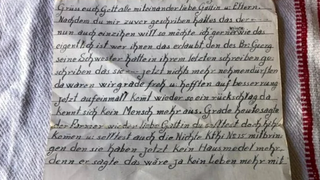 Grüss euch Gott alle miteinander liebe Gotlin u. Eltern.
Nachdem du mir zuvor geschriben hattes das der
nun auch einzihen will so möchte ich gerne wie das
eigentlich ist wer ihnen das erlaubt den des Br. Georg
seine Schwester hatte in ihrem letzten schreiben ge-
schrieben das sie jetzt nichts mehr nehmen dürften
da waren wir grade froh u. hofften auf besserung
jetzt auf einmall komt wieder so ein rückschlag da
kennt sich kein Mensch mehr aus. Grade heute sagte
der Pfarrer wieder liebe Gotlin du solltest doch
komen u. solltest auch die Nichte mitbrin-
gen den sie haben jetzt kein Hausmedel mehr
denn er sagte das wäre ja kein Leben mehr mit